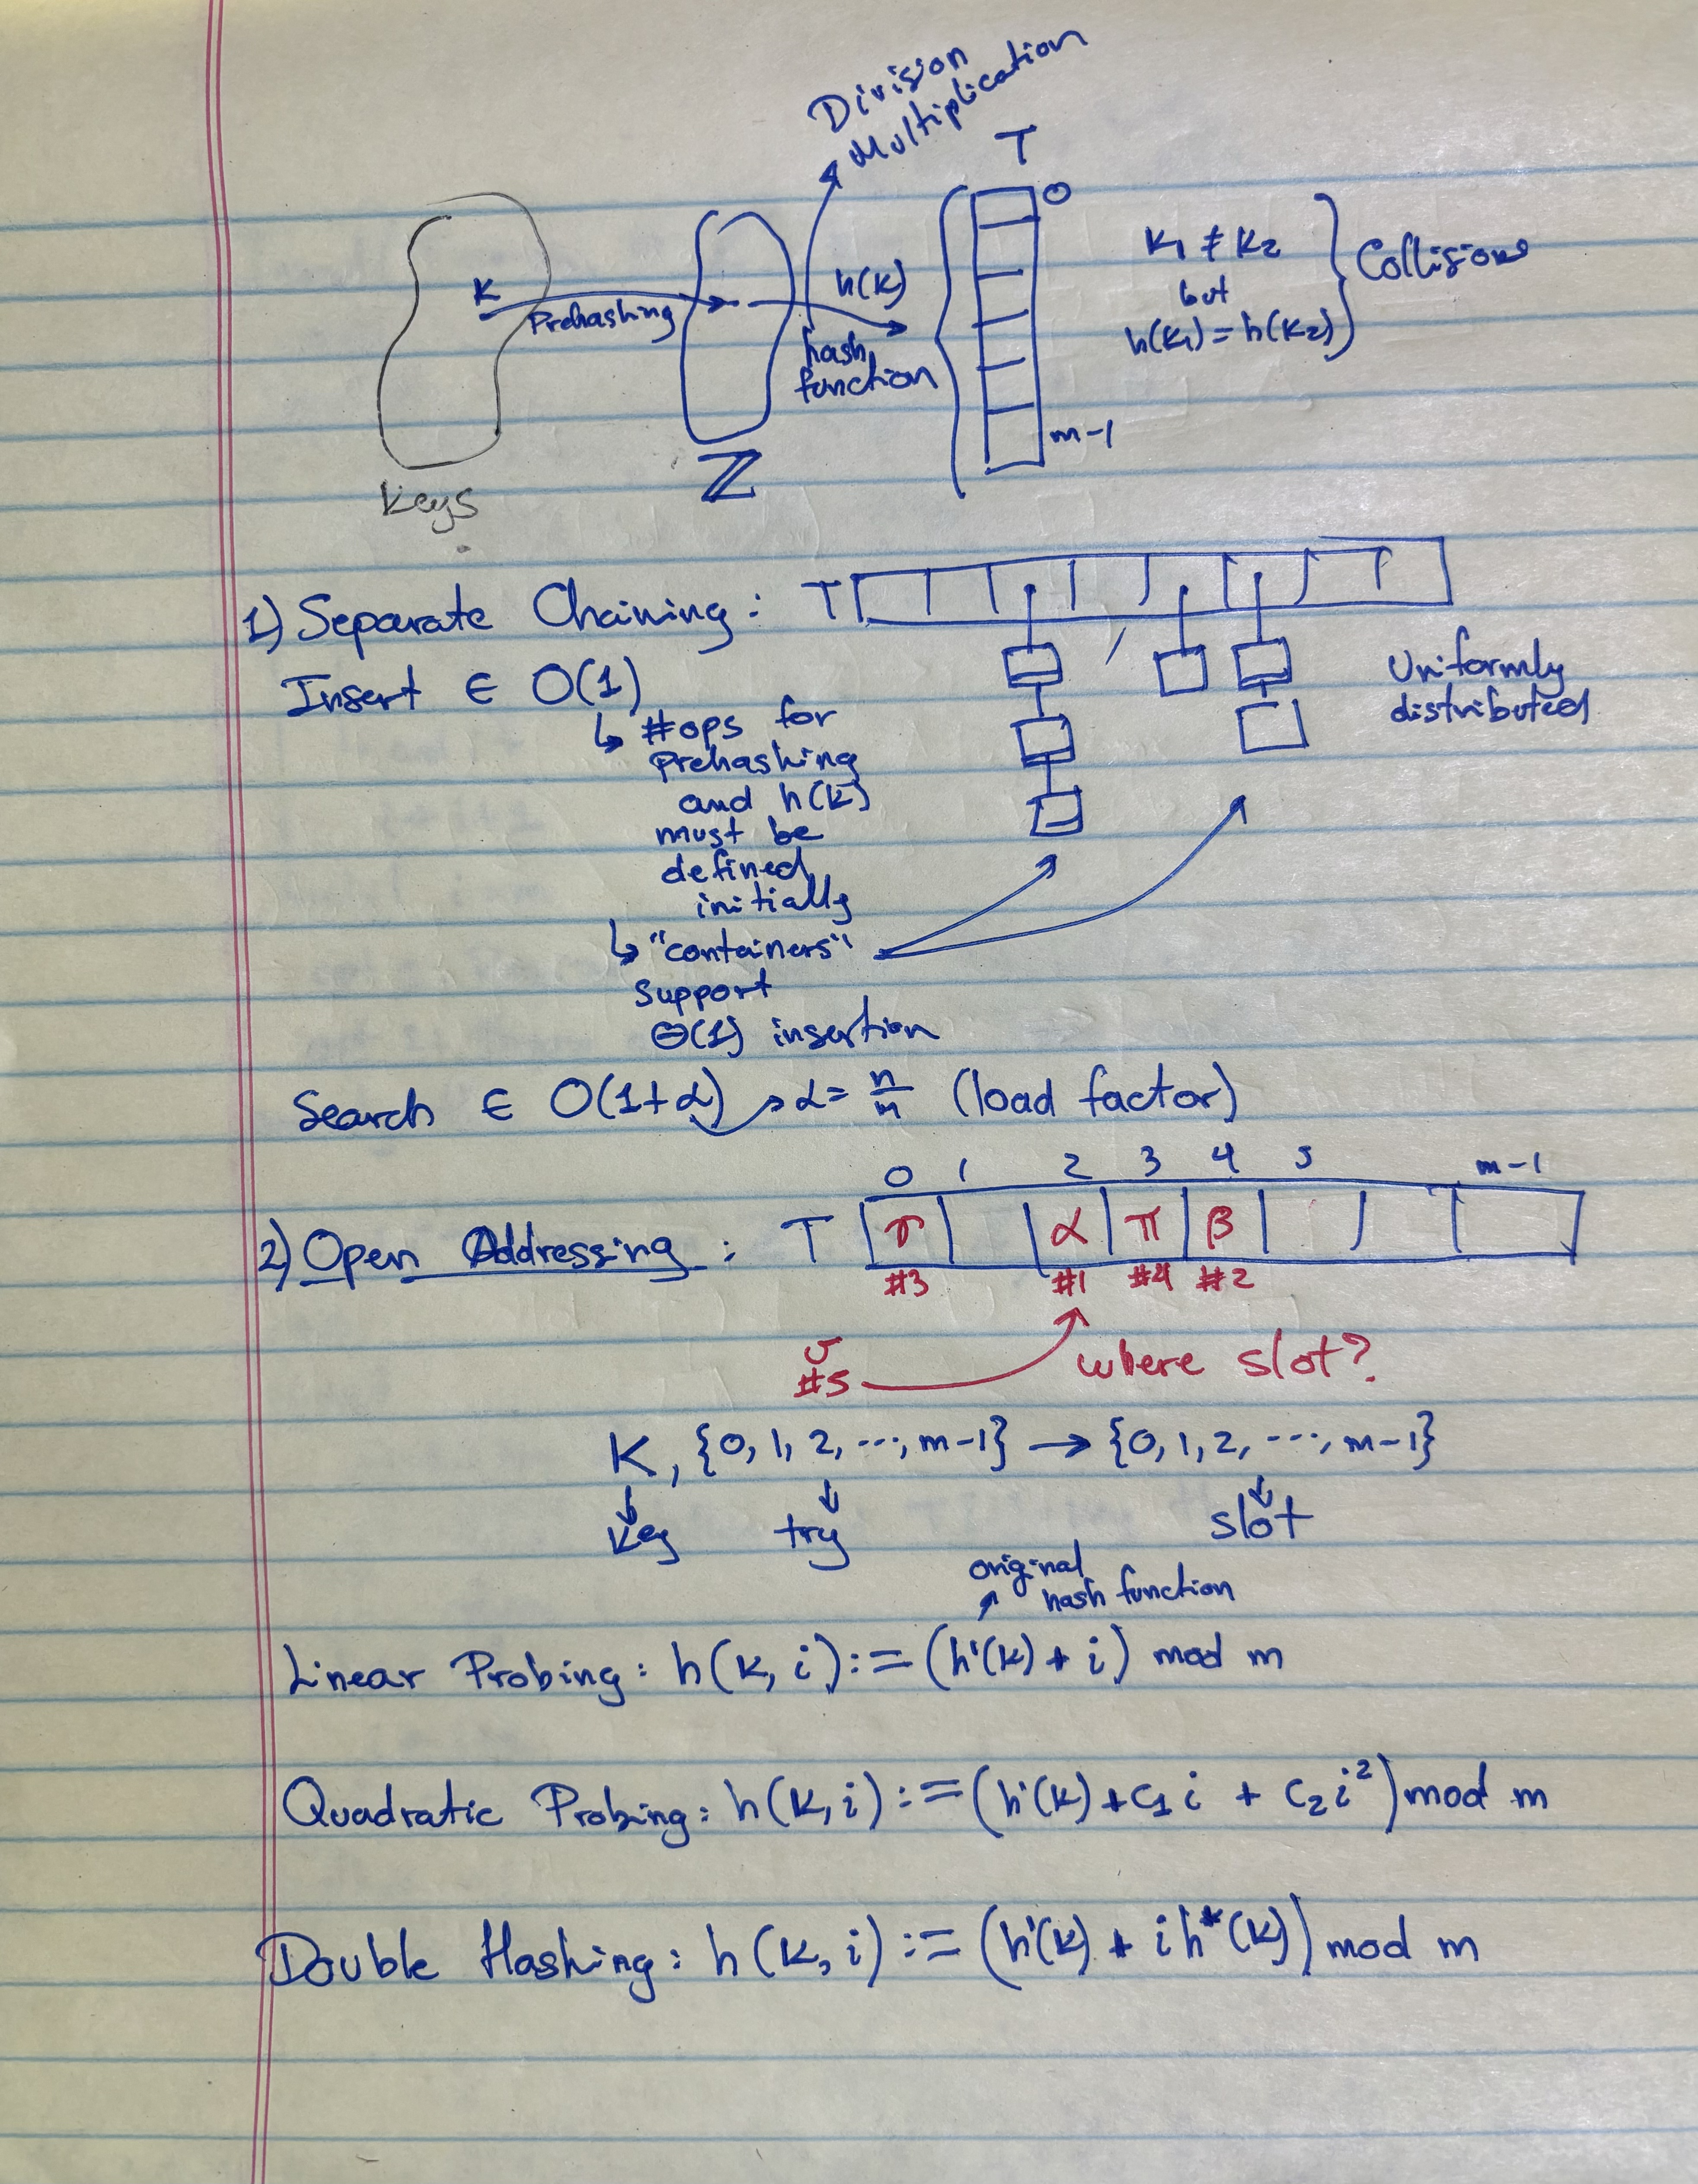 Division
Multiplication
T
0
K
Prehashing
h(K)
hash
function
K₁ ≠ K₂
but
h(K₁) = h(K₂)
} Collisions
m-1
Keys
ℤ
1) Separate Chaining: T
Insert ∈ O(1)
↳ #ops for
Prehashing
and h(K)
must be
defined
initially
↳ "containers"
support
Θ(1) insertion
Uniformly
distributed
Search ∈ O(1+α) → α = n/m (load factor)
0 1 2 3 4 5 m-1
2) Open Addressing: T
α π β
#3 #1 #4 #2
#5
where slot?
K, {0, 1, 2, ..., m-1} → {0, 1, 2, ..., m-1}
↓ ↓ ↓
Key try slot
original
hash function
Linear Probing: h(K, i) := (h'(K) + i) mod m
Quadratic Probing: h(K, i) := (h'(K) + C₁ i + C₂ i²) mod m
Double Hashing: h(K, i) := (h'(K) + i h*(K)) mod m